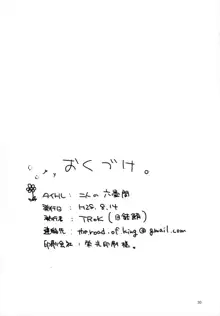 おくづけ。
タイトル: 二人の六畳間
発行日: H28.8.14
発行者: TRok (@銀鮭)
連絡先: the.road.of.king@gmail.com
印刷会社: 栄光印刷様。